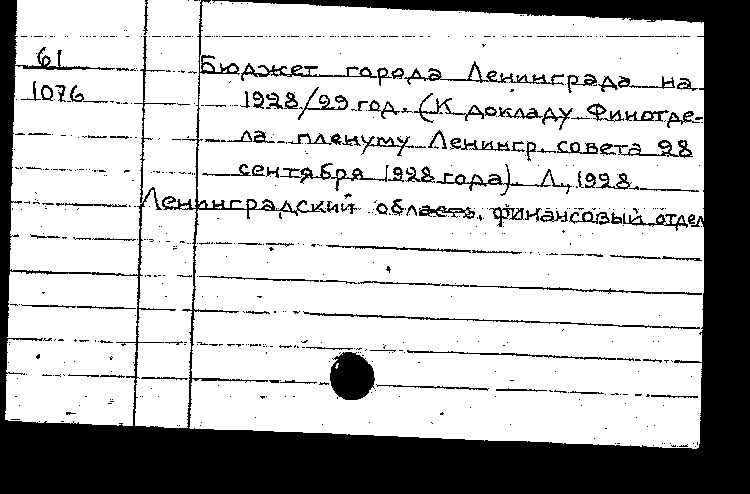 61
1076
Бюджет города Ленинграда на
1928/29 год. (К докладу Финотде-
ла пленуму Ленингр. совета 28
сентября 1928 года). Л., 1928.
Ленинградский область. финансовый отдел